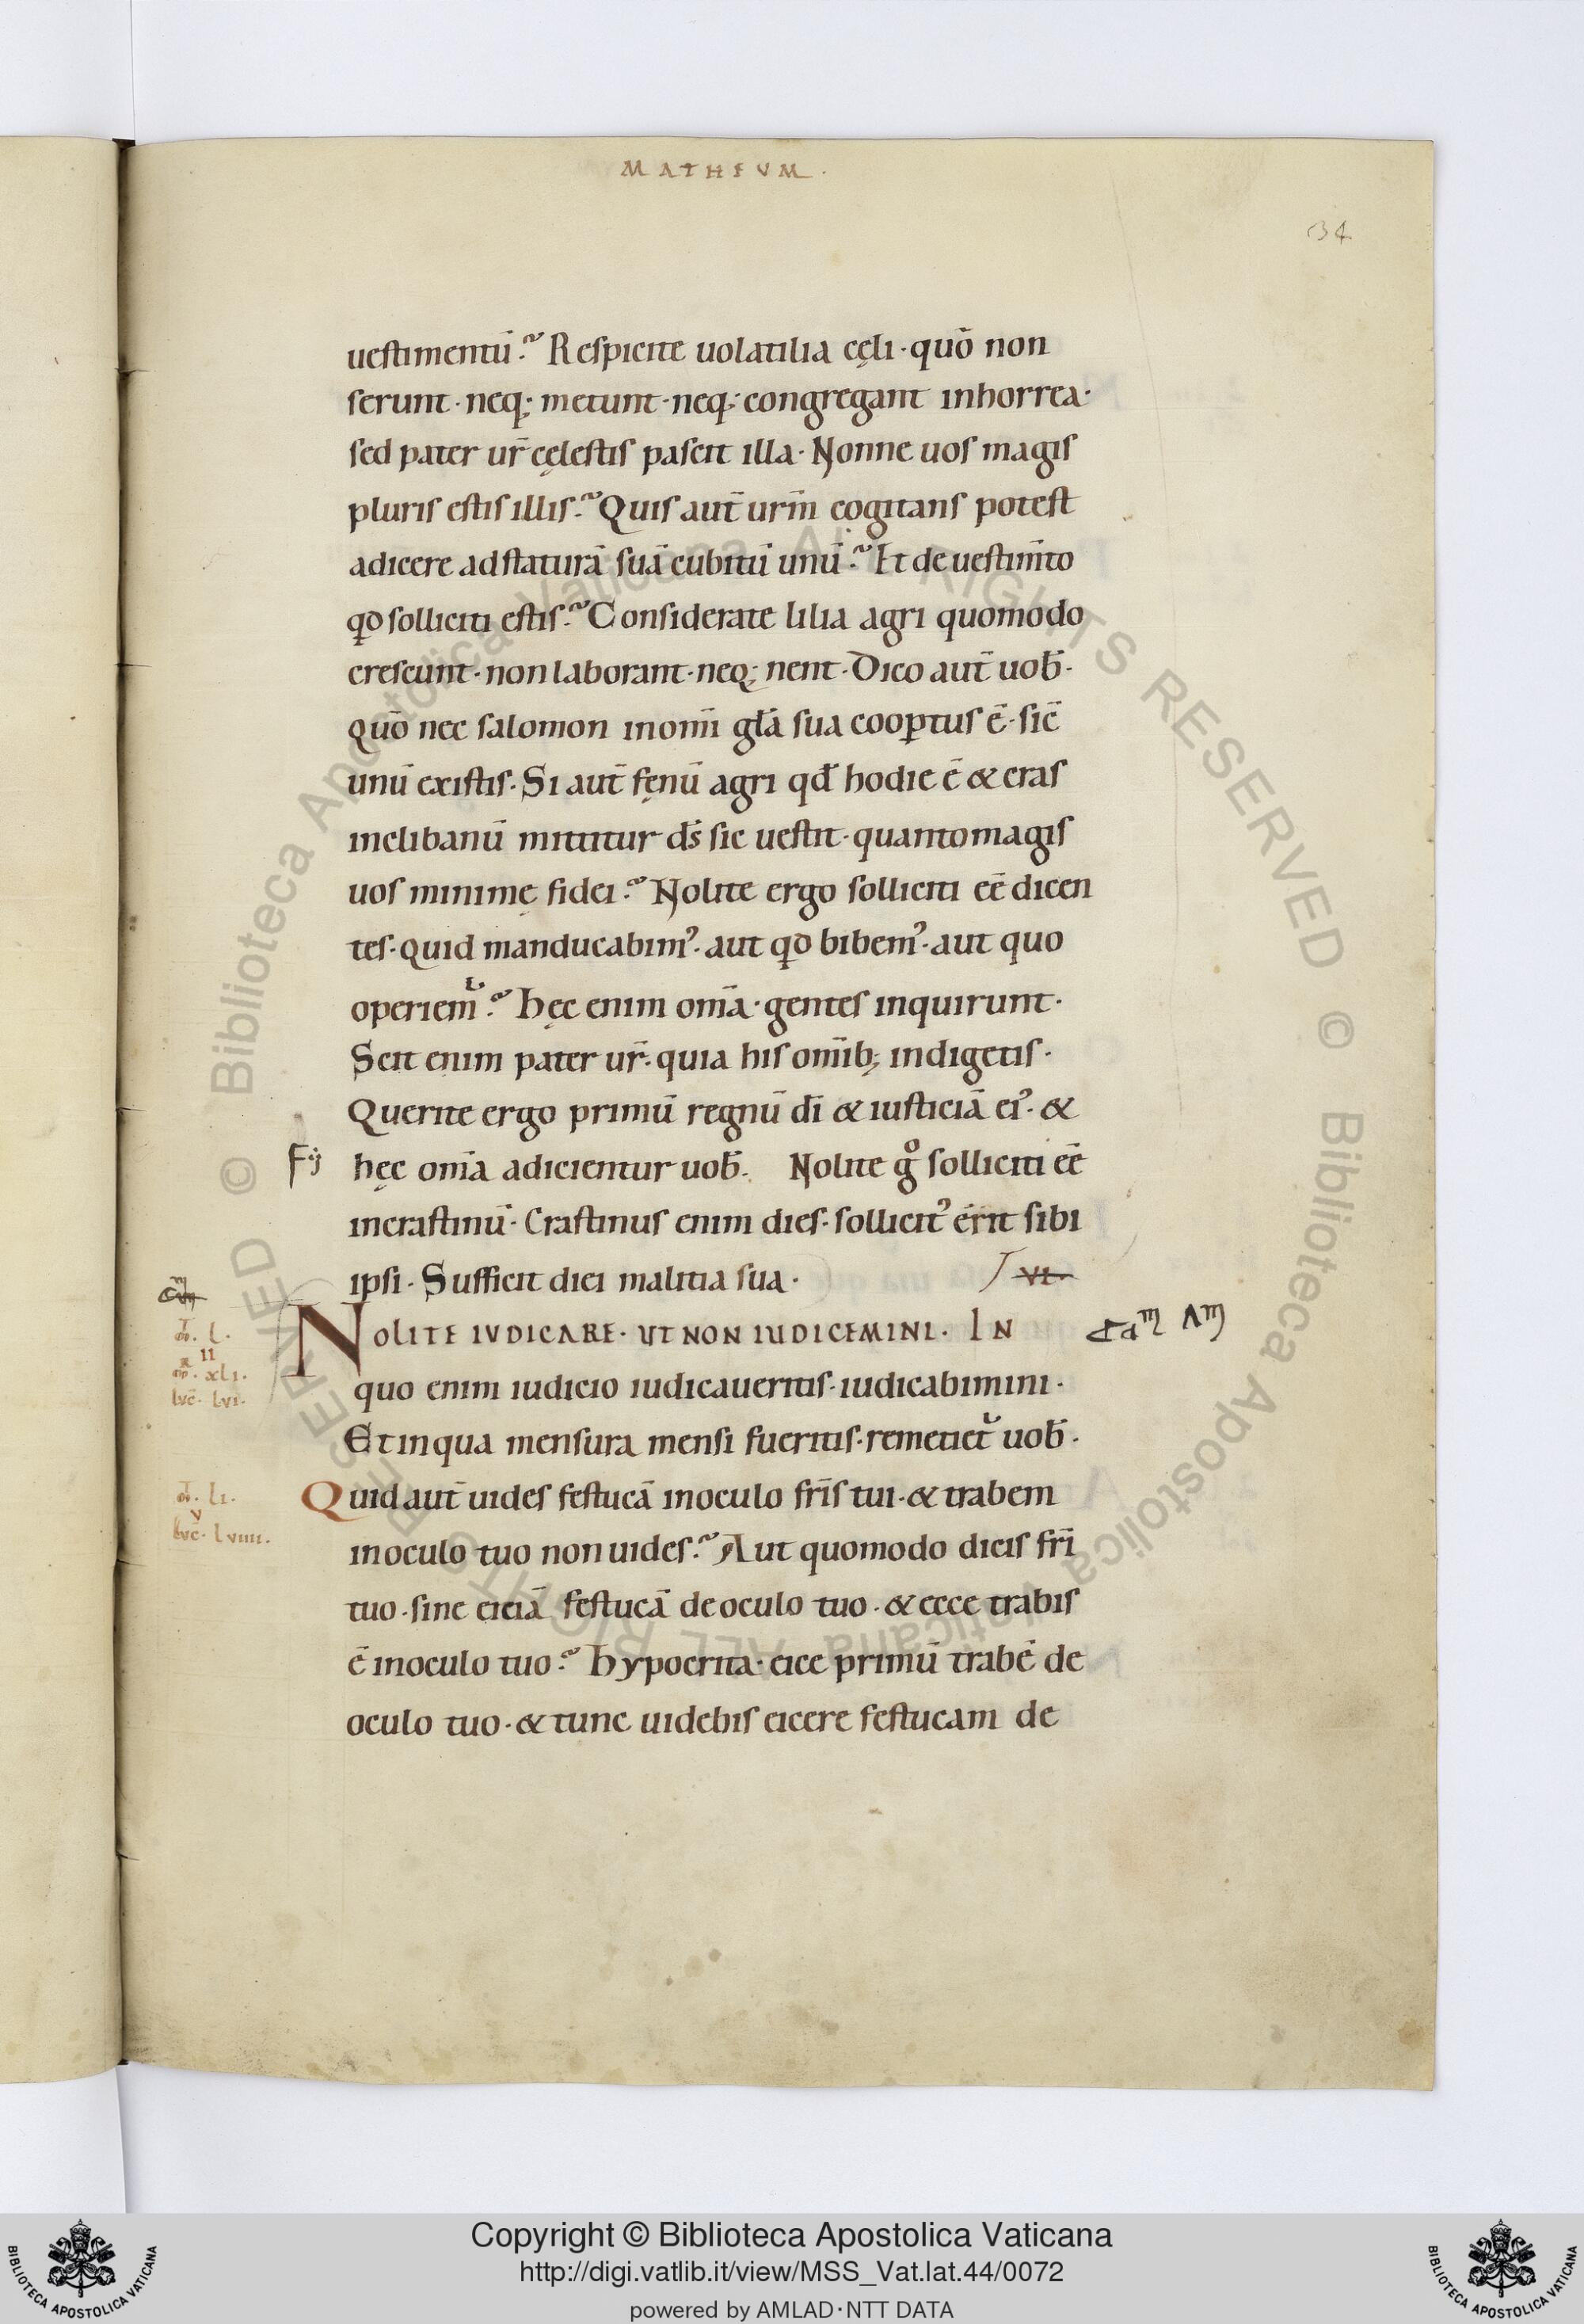 MATHEVM.
34
uestimentū? Respicite uolatilia cęli · quō non
serunt · neq; metunt · neq; congregant inhorrea ·
sed pater ur̄ cęlestis pascit illa · Nonne uos magis
pluris estis illis? Quis aut̄ urm̄ cogitans potest
adicere adstaturā suā cubitū unū? Et de uestim̄to
qd solliciti estis? Considerate lilia agri quomodo
crescunt · non laborant · neq; nent · Dico aut̄ uob̄ ·
quō nec salomon inomī glā sua coopꝑtus ē · sic̄
unū existis · Si aut̄ fęnū agri qd̄ hodie ē & cras
inclibanū mittitur ds̄ sic uestit · quantomagis
uos minimę fidei? Nolite ergo solliciti eē dicen
tes · quid manducabimꝰ · aut qd bibemꝰ · aut quo
operiem̄? hęc enim omā · gentes inquirunt ·
Scit enim pater ur̄ · quia his omīb; indigetis ·
Querite ergo primū regnū dī & iusticiā eiꝰ · &
hęc omā adicientur uob̄. Nolite gͦ solliciti eē
incrastinū · Crastinus enim dies · sollicitꝰ erit sibi
ipsi · Sufficit diei malitia sua ·
VI
NOLITE IVDICARE · UT NON IUDICEMINI · IN
quo enim iudicio iudicaueritis · iudicabimini ·
Et inqua mensura mensi fueritis · remetiet᷑ uob̄ ·
Quid aut̄ uides festucā inoculo frīs tui · & trabem
inoculo tuo non uides? Aut quomodo dicis frī
tuo · sine eiciā festucā deoculo tuo · & ecce trabis
ē inoculo tuo? hypocrita · eice primū trabē de
oculo tuo · & tunc uidebis eicere festucam de
l.
II
xli.
luc̄. lvi.
li.
v
luc̄. lviiii.
© Biblioteca Apostolica Vaticana ALL RIGHTS RESERVED
© Biblioteca Apostolica Vaticana ALL RIGHTS RESERVED
Copyright © Biblioteca Apostolica Vaticana
http://digi.vatlib.it/view/MSS_Vat.lat.44/0072
powered by AMLAD·NTT DATA
BIBLIOTECA APOSTOLICA VATICANA
BIBLIOTECA APOSTOLICA VATICANA